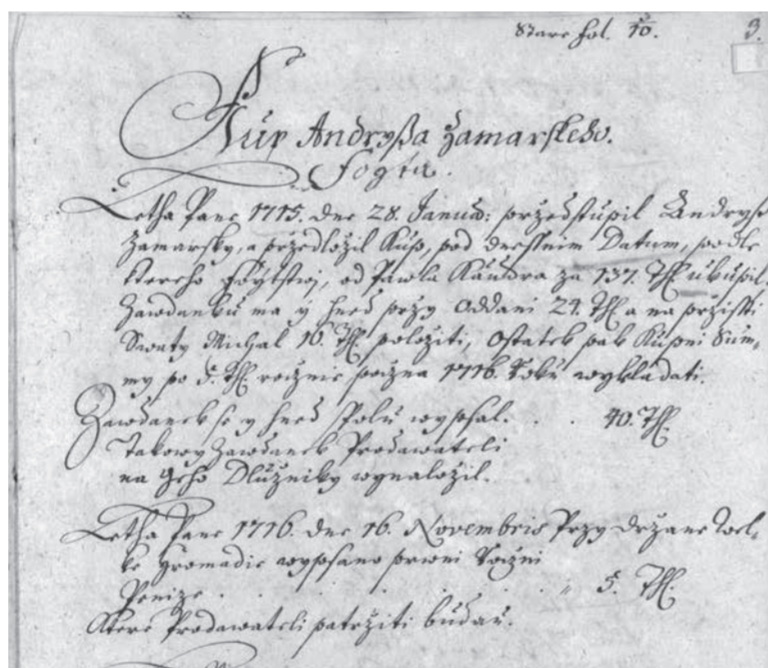 Stare fol. 10. 3.
Kup Andryßa Zamarskeho.
Fogta.
Letha Pane 1715. dne 28. Januar: przedstupil Andryß
Zamarsky, a przedlozil Kup, pod dnessnim Datum, podle
ktereho Foytstwj, od Pawla Kandra za 137. Thl ukupil.
Zawdanku ma y hned przy oddani 24. Thl a na przissti
Swaty Michal 16. Thl. poloziti, Ostatek pak Kupni Sum-
my po 5. Thl. rocznie poczna 1716. Roku wykladati.
Zawdanek se y hned spolu wypsal. . . 40. Thl.
Takowy Zawdanek Prodawateli
na geho Dlużniky wynalożil.
Letha Pane 1716. dne 16. Novembris Przy drżane Wel-
ke Hromadie wypsano prwni Roczni
Penize . . . . . . 5. Thl.
Ktere Prodawateli patrziti budau.